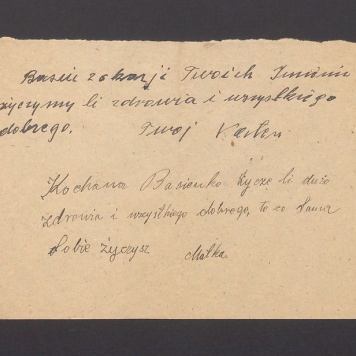 Basiu z okazji Twoich Imienin
życzymy Ci zdrowia i wszystkiego
dobrego. Twój
Kochana Basieńko Życzę Ci dużo
zdrowia i wszystkiego dobrego, to co sama
Sobie życzysz Matka.